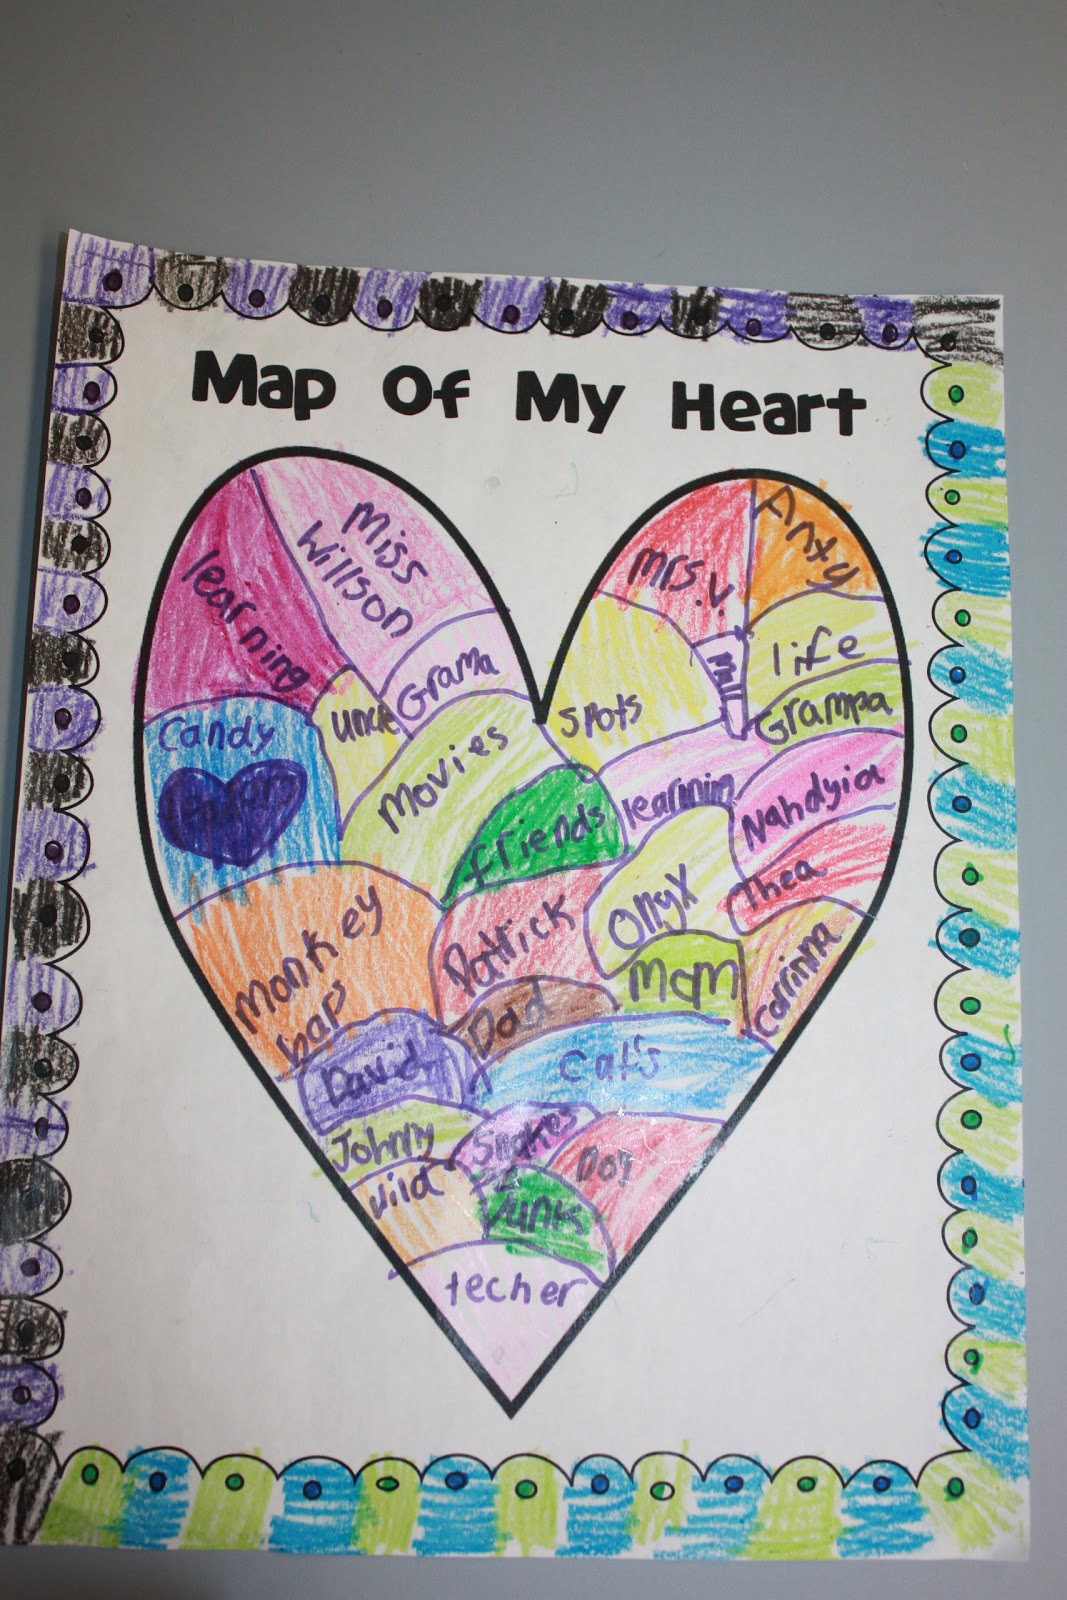 Map Of My Heart
learning
Miss
Willson
Grama
uncle
Candy
Movies
friends
Monkey
bars
Patrick
Dad
David
Johnny
Snakes
Dog
Junk
techer
Mrs.V.
Anxty
life
Grampa
Spots
learnning
Nahdyia
Thea
Onyx
Mom
Carinna
Cat's